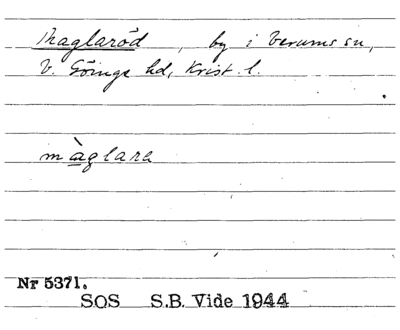 Maglaröd, by i Verums sn,
V. Göinge hd, Krist. l.
màglara
Nr 5371.
SOS S.B. Vide 1944